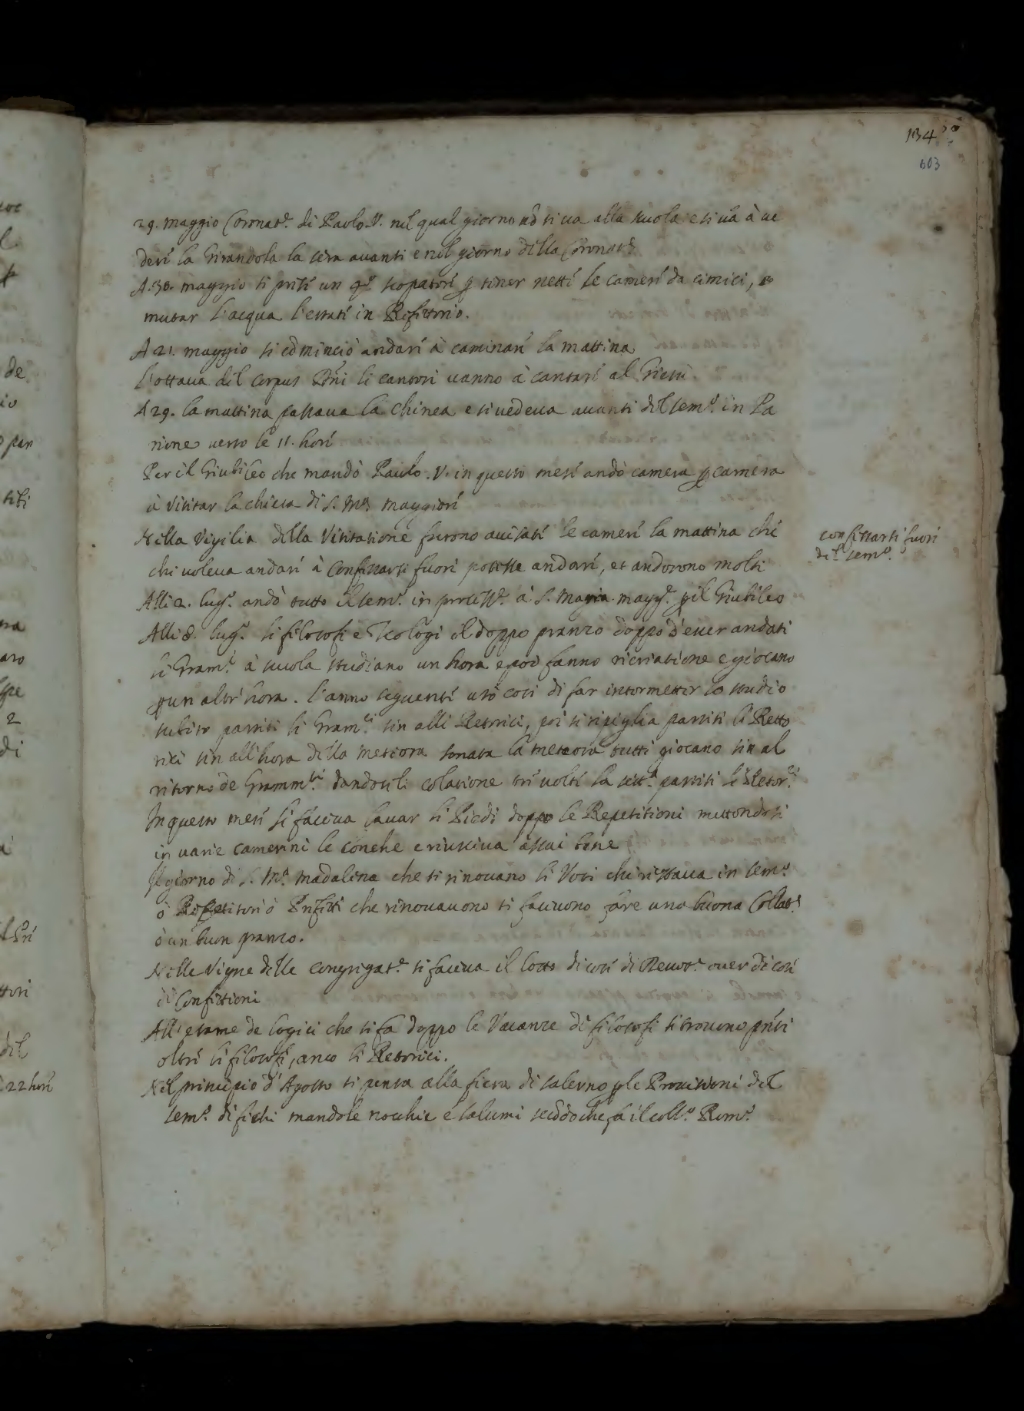 134
603
29. maggio Coronat.e di Paolo V. nel qual giorno nõ si va alla scuola e si và à ve
dere la Girandola la sera avanti e nel giorno della Coronat.e
A 30. maggio si un scopatore ꝑ tener nette le camere da cimici, e
mutar l'acqua l'estate in Refittorio.
A 21. maggio si cominciò andare à caminare la mattina
L'ottava del Corpus Dñi li cantori vanno à cantare al Giesù.
A 29. la mattina passava la chinea e si vedeva avanti del Sem.o in Pa
rione verso le 11. hore
Per il Giubileo che mandò Paulo V. in questo mese andò camera ꝑ camera
à visitar la chiesa di S. M.a maggiore
Nella Vigilia della Visitatione furono avisate le camere la mattina che
chi voleva andare à Confessarsi fuori potesse andare, et andorono molti
confessarsi fuori
del Sem.o
Alli 2. lug.o andò tutto il Sem.o in à S. Maria magg.e ꝑ il Giubileo
Alli 8. lug.o li filosofi e Teologi il doppo pranzo doppo d'esser andati
li Gram.i à scuola studiano un hora e poi fanno ricreatione e giocano
ꝑ un altr' hora. l'anno seguente usò così di far intermetter lo studio
subito partiti li Gram.ci sin alli Retorici, poi si ripiglia partiti li Retto
rici sin all'hora della mezzora sonata la mezzora tutti giocano sin al
ritorno de Gramm.ci dandoseli colatione tre volte la sett.a partiti li Retor.ci
In questo mese si faceva lavar li Piedi doppo le Repetitioni mettendosi
in varie camerini le conche e riusciva assai bene
Il giorno di S. M.a Madalena che si rinovano li Voti chi restava in Sem.o
ò Repetitori ò Prefetti che rinovavono si facevono fare una buona Collat.e
ò un buon pranzo.
Nelle Vigne delle Congregat.e si faceva il di cose di Devot.e over di cose
di Confettioni
All'esame de logici che si fa doppo le Vacanze de filosofi si trovono pñti
oltre li filosofi, anco li Retorici.
Nel principio d'Agosto si pensa alla fiera di Salerno ꝑ le Provisioni del
Sem.o di fichi mandole nocchie e salumi secõdo che fà il Coll.o Rom.o
22 hore